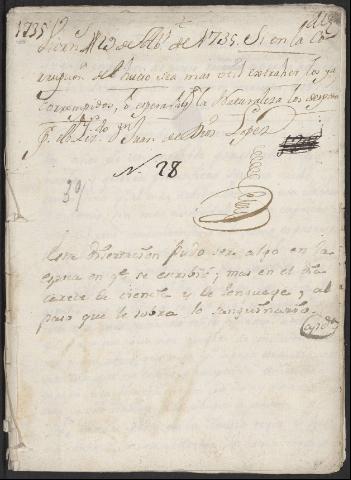 1735
Juev. 12 de Obre. de 1735. Si en la Co-
rrupcion del hueso sea mas util extraher los ya
corrompidos, ò esperar q. la Naturaleza los
P. el Ldo. Dn. Juan de Dios Lopez
N. 28
39
Esta disertacion pudo ser algo en la
epoca en qe. se escribió; mas en el dia
carece de ciencia y de lenguage, y al
paso que le sobra lo sanguinario.